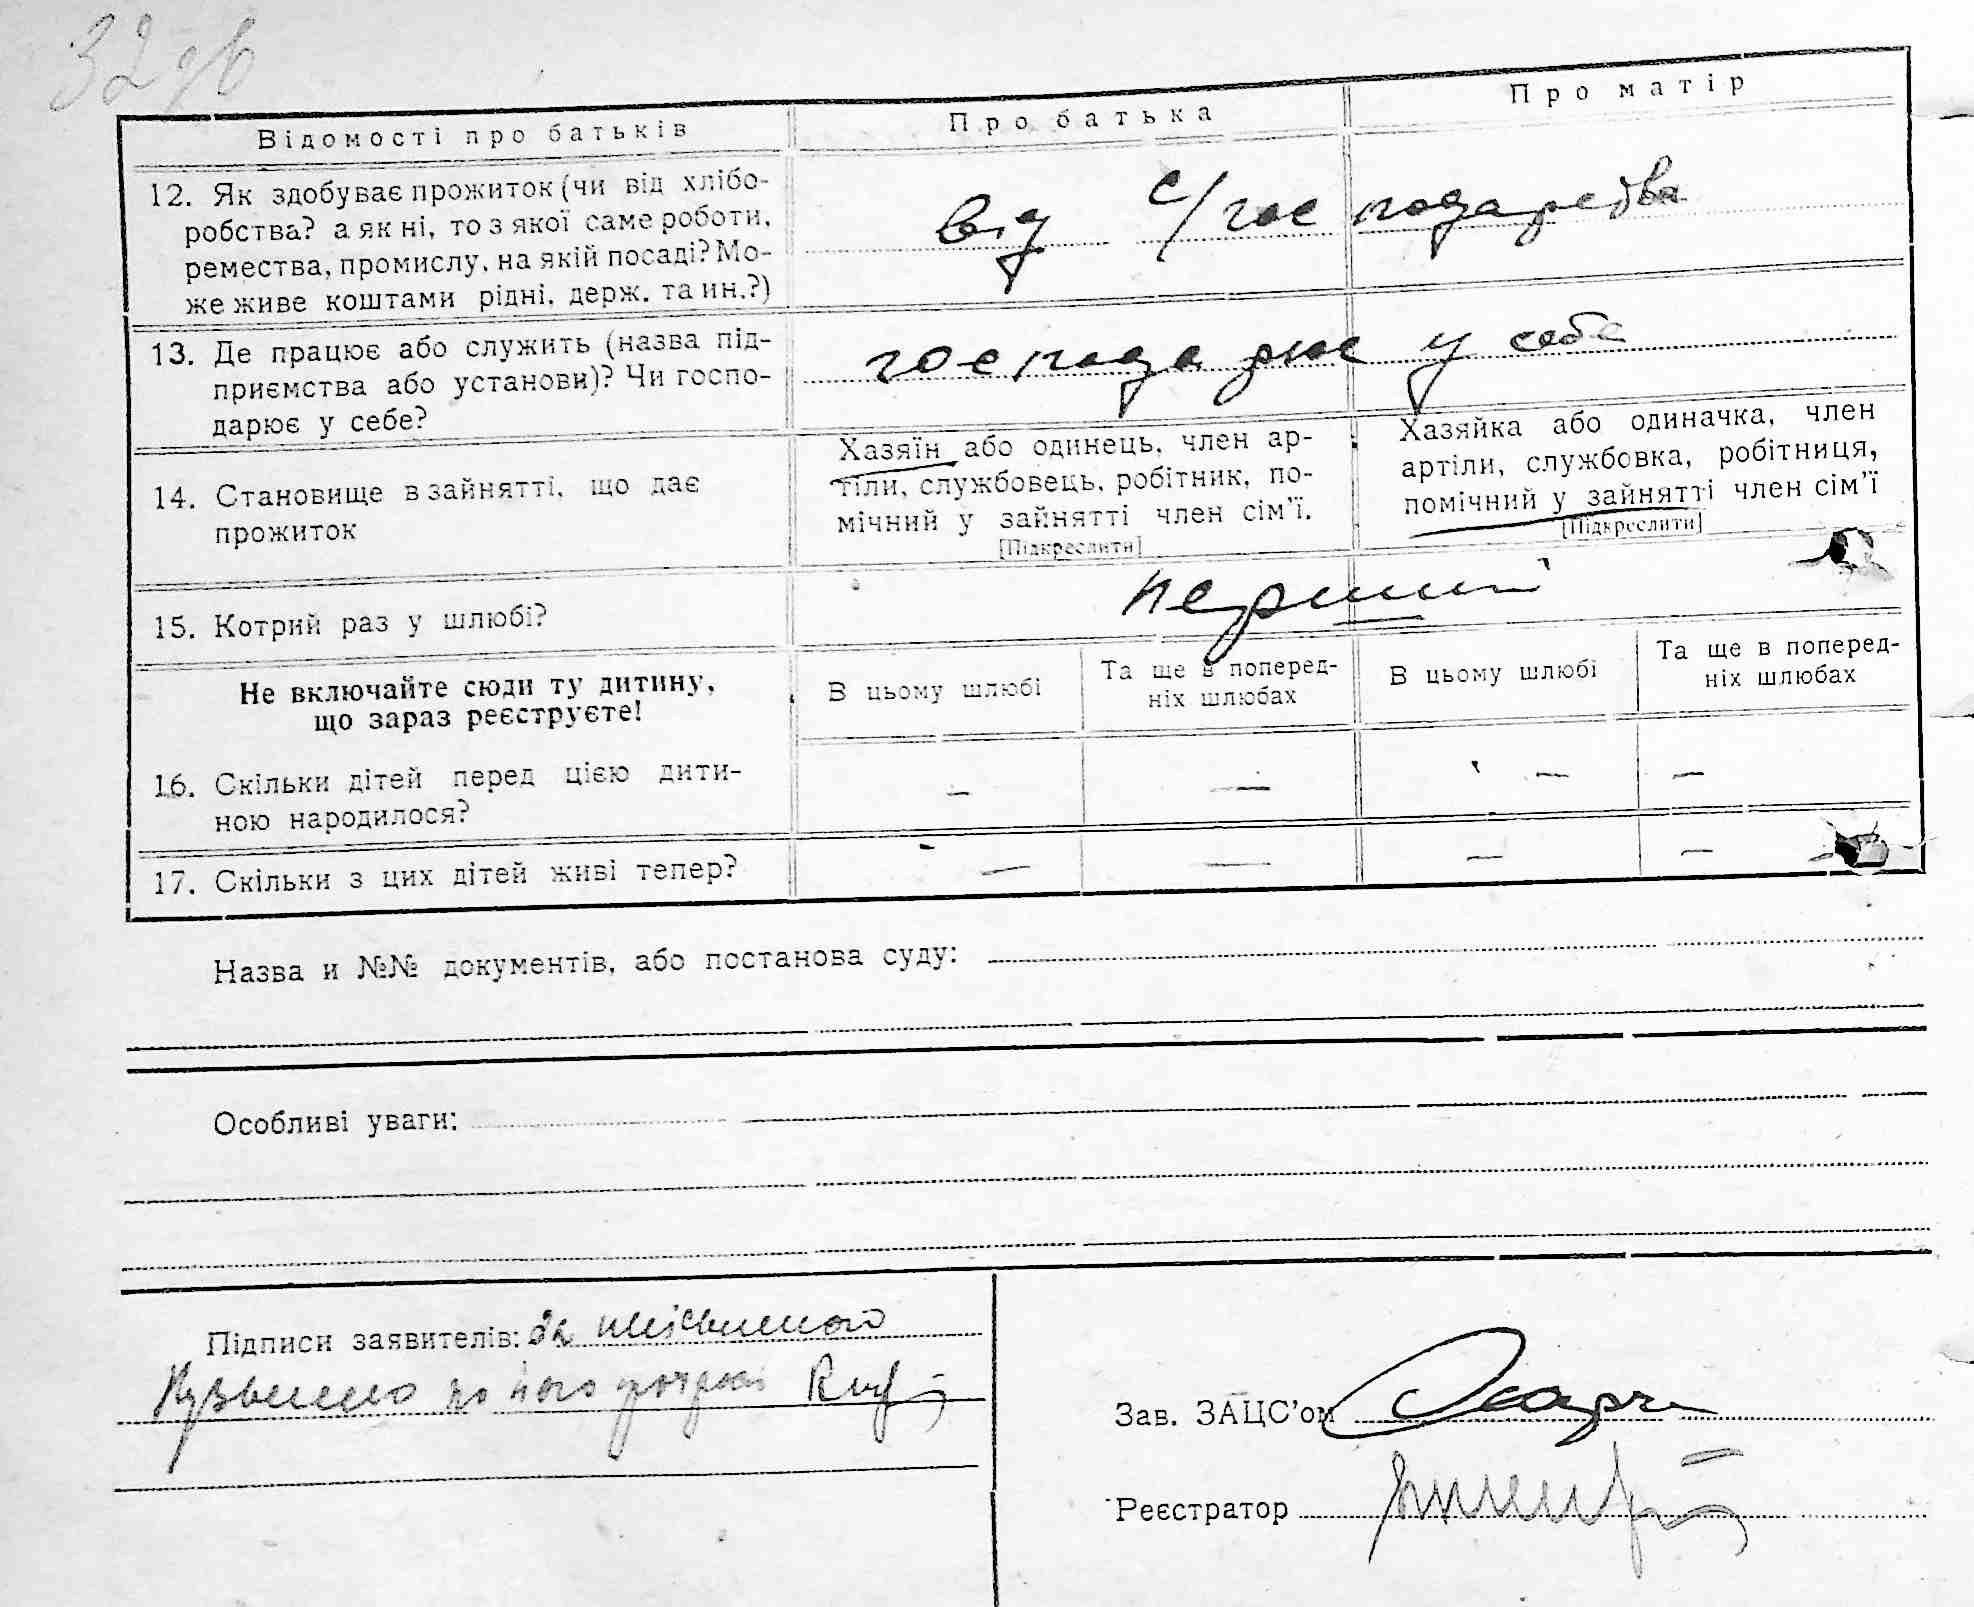 32
Відомості про батьків
Про батька
Про матір
12. Як здобуває прожиток (чи від хлібо-
робства? а як ні, то з якої саме роботи,
ремества, промислу, на якій посаді? Мо-
же живе коштами рідні, держ. та ин.?)
від с/господарства
13. Де працює або служить (назва під-
приємства або установи)? Чи госпо-
дарює у себе?
господарює у себе
14. Становище в зайнятті, що дає
прожиток
Хазяїн або одинець, член ар-
тіли, службовець, робітник, по-
мічний у зайнятті член сім’ї.
[Підкреслити]
Хазяйка або одиначка, член
артіли, службовка, робітниця,
помічний у зайнятті член сім’ї
[Підкреслити]
15. Котрий раз у шлюбі?
перший
Не включайте сюди ту дитину,
що зараз реєструєте!
В цьому шлюбі
Та ще в поперед-
ніх шлюбах
В цьому шлюбі
Та ще в поперед-
ніх шлюбах
16. Скільки дітей перед цією дити-
ною народилося?
— — — —
17. Скільки з цих дітей живі тепер?
— — — —
Назва и №№ документів, або постанова суду:
Особливі уваги:
Підписи заявителів: за неписьменого
по його
Зав. ЗАЦС’ом
Реєстратор